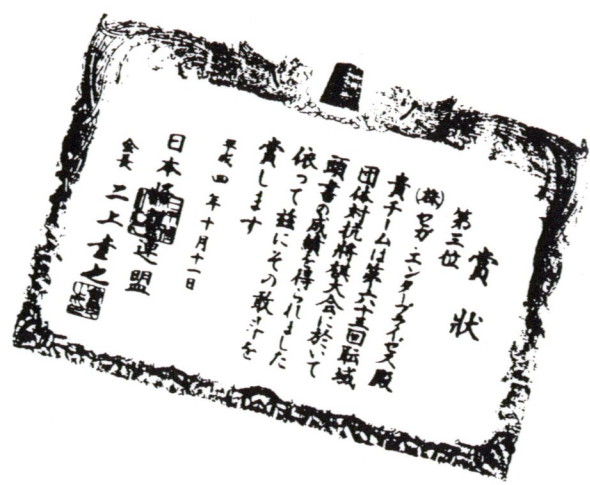 賞状
第三位
(株)セガ・エンタープライゼス殿
貴チームは第六十三回職域
団体対抗将棋大会に於いて
頭書の成績を得られました
依って茲にその敢斗を
賞します
平成四年十月十一日
日本将棋連盟
会長 二上達也